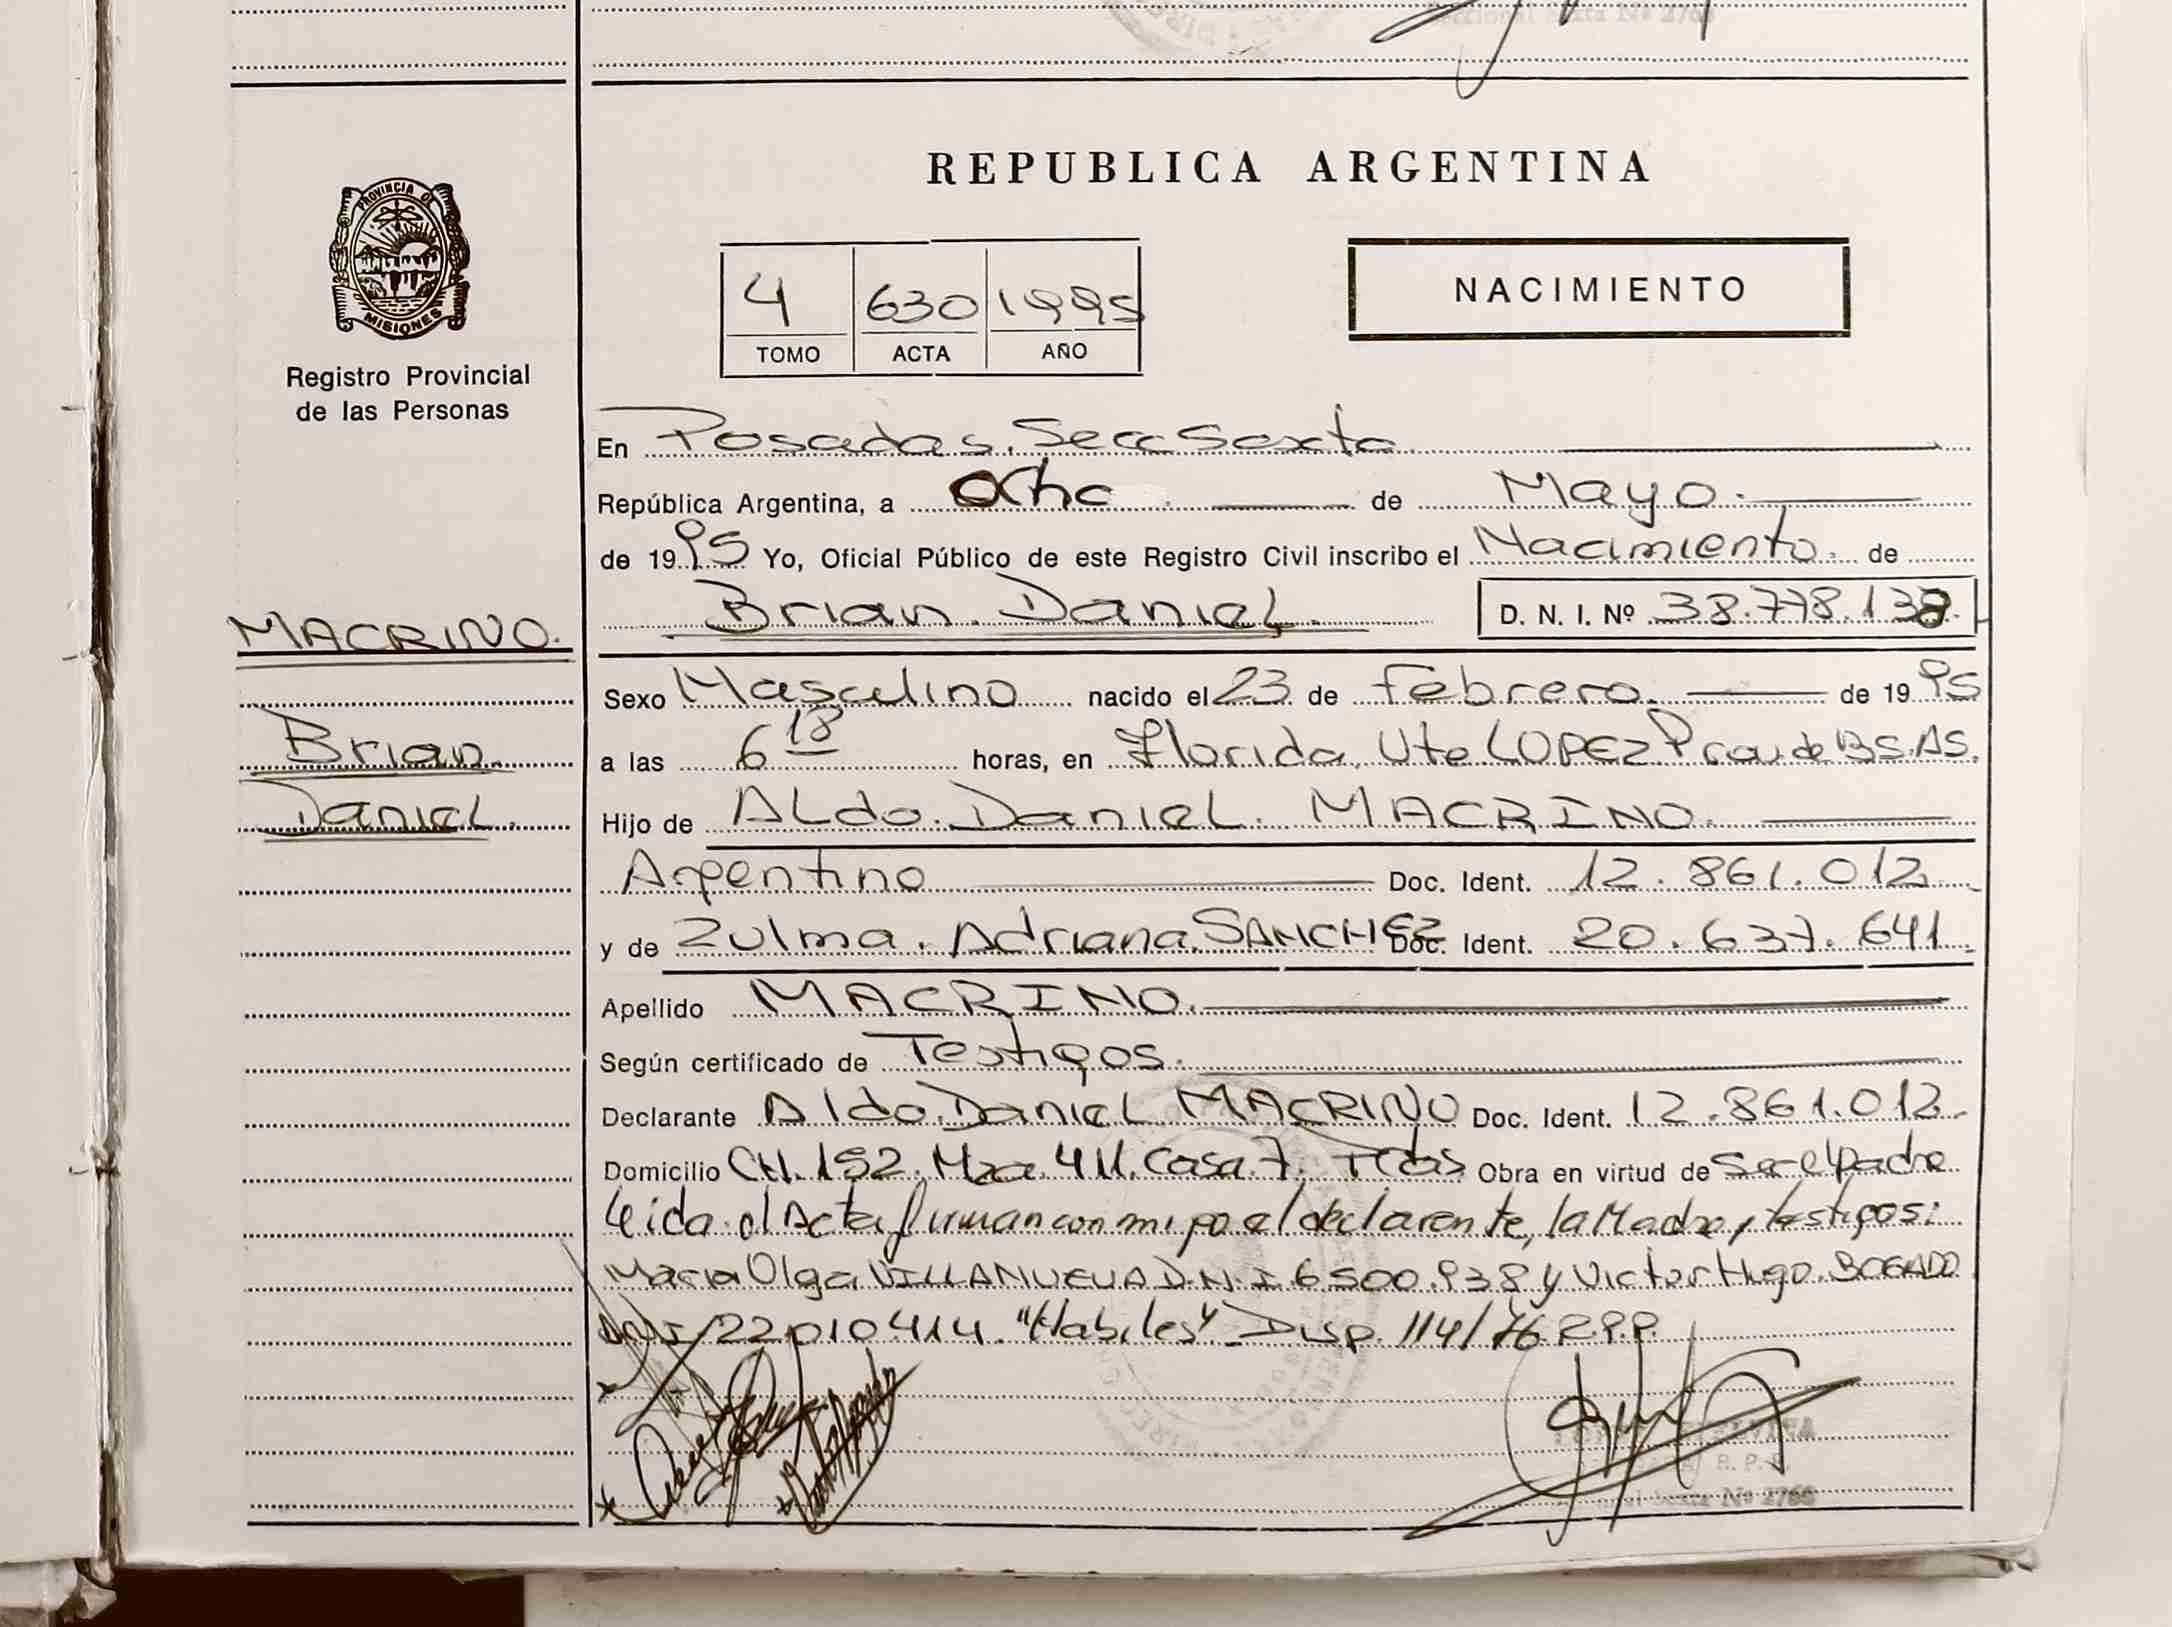 Seccional Sexta Nº 2768
REPUBLICA ARGENTINA
PROVINCIA DE
MISIONES
Registro Provincial
de las Personas
4 630 1995
TOMO ACTA AÑO
NACIMIENTO
En Posadas. Secc Sexta
República Argentina, a Ocho de Mayo.
de 1995 Yo, Oficial Público de este Registro Civil inscribo el Nacimiento. de
Brian. Daniel. D. N. I. Nº 38.778.138.
MACRINO.
Brian.
Daniel.
Sexo Masculino nacido el 23 de Febrero. de 1995
a las 6 18 horas, en Florida, Vte LOPEZ Prov de BS.AS.
Hijo de ALdo. Daniel. MACRINO.
Argentino Doc. Ident. 12.861.012
y de Zulma. Adriana. SANCHEZ Doc. Ident. 20.637.641
Apellido MACRINO.
Según certificado de Testigos.
Declarante Aldo. Daniel MACRINO Doc. Ident. 12.861.012
Domicilio CH. 152. Mza. 411. Casa. 7. Pdas Obra en virtud de Ser el padre
Leida el Acta firman conmigo el declarante, la Madre y testigos:
Maria Olga VILLANUEVA D.N.I. 6.500.938 y Victor Hugo. BOGADO
DNI 22010414. "Habiles" Disp. 114/76 R.P.P.
R. P. P.
Seccional Sexta Nº 2768